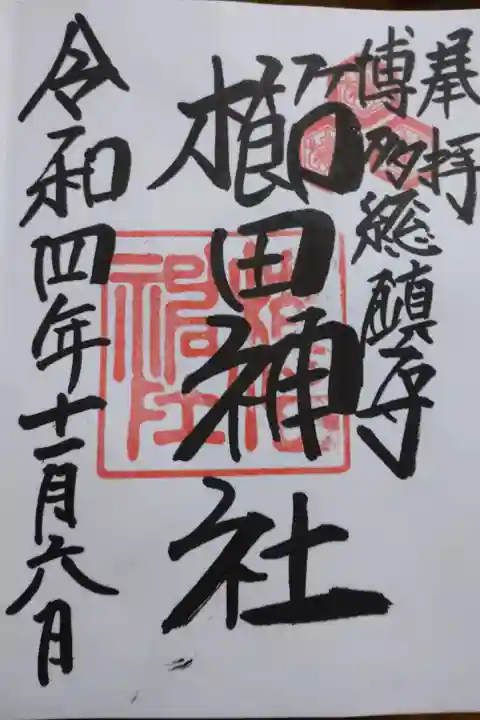 奉拝
博多総鎮守
櫛田神社
令和四年十一月六日